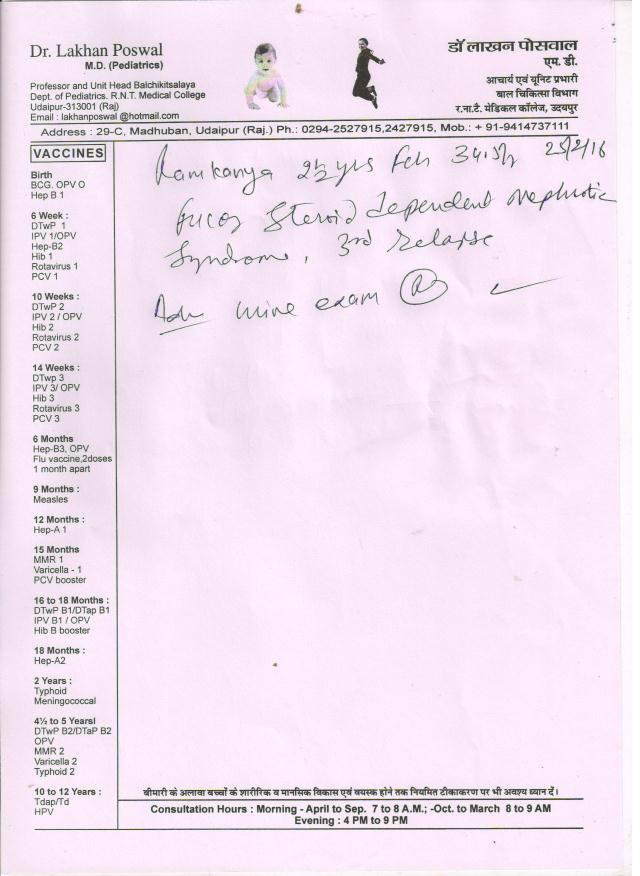 Dr. Lakhan Poswal
M.D. (Pediatrics)
Professor and Unit Head Balchikitsalaya
Dept. of Pediatrics. R.N.T. Medical College
Udaipur-313001 (Raj)
Email : lakhanposwal @hotmail.com
डॉ लाखन पोसवाल
एम. डी.
आचार्य एवं यूनिट प्रभारी
बाल चिकित्सा विभाग
र.ना.टै. मेडिकल कॉलेज, उदयपुर
Address : 29-C, Madhuban, Udaipur (Raj.) Ph.: 0294-2527915,2427915, Mob.: + 91-9414737111
VACCINES
Birth
BCG. OPV O
Hep B 1
6 Week :
DTwP 1
IPV 1/OPV
Hep-B2
Hib 1
Rotavirus 1
PCV 1
10 Weeks :
DTwP 2
IPV 2 / OPV
Hib 2
Rotavirus 2
PCV 2
14 Weeks :
DTwp 3
IPV 3/ OPV
Hib 3
Rotavirus 3
PCV 3
6 Months
Hep-B3, OPV
Flu vaccine,2doses
1 month apart
9 Months :
Measles
12 Months :
Hep-A 1
15 Months
MMR 1
Varicella - 1
PCV booster
16 to 18 Months :
DTwP B1/DTap B1
IPV B1 / OPV
Hib B booster
18 Months :
Hep-A2
2 Years :
Typhoid
Meningococcal
4½ to 5 Yearsl
DTwP B2/DTaP B2
OPV
MMR 2
Varicella 2
Typhoid 2
10 to 12 Years :
Tdap/Td
HPV
Ramkanya 2½ yrs Fch
Steroid dependent nephrotic
Syndrome, 3rd relapse
Adv urine exam
बीमारी के अलावा बच्चों के शारीरिक व मानसिक विकास एवं वयस्क होने तक नियमित टीकाकरण पर भी अवश्य ध्यान दें।
Consultation Hours : Morning - April to Sep. 7 to 8 A.M.; -Oct. to March 8 to 9 AM
Evening : 4 PM to 9 PM